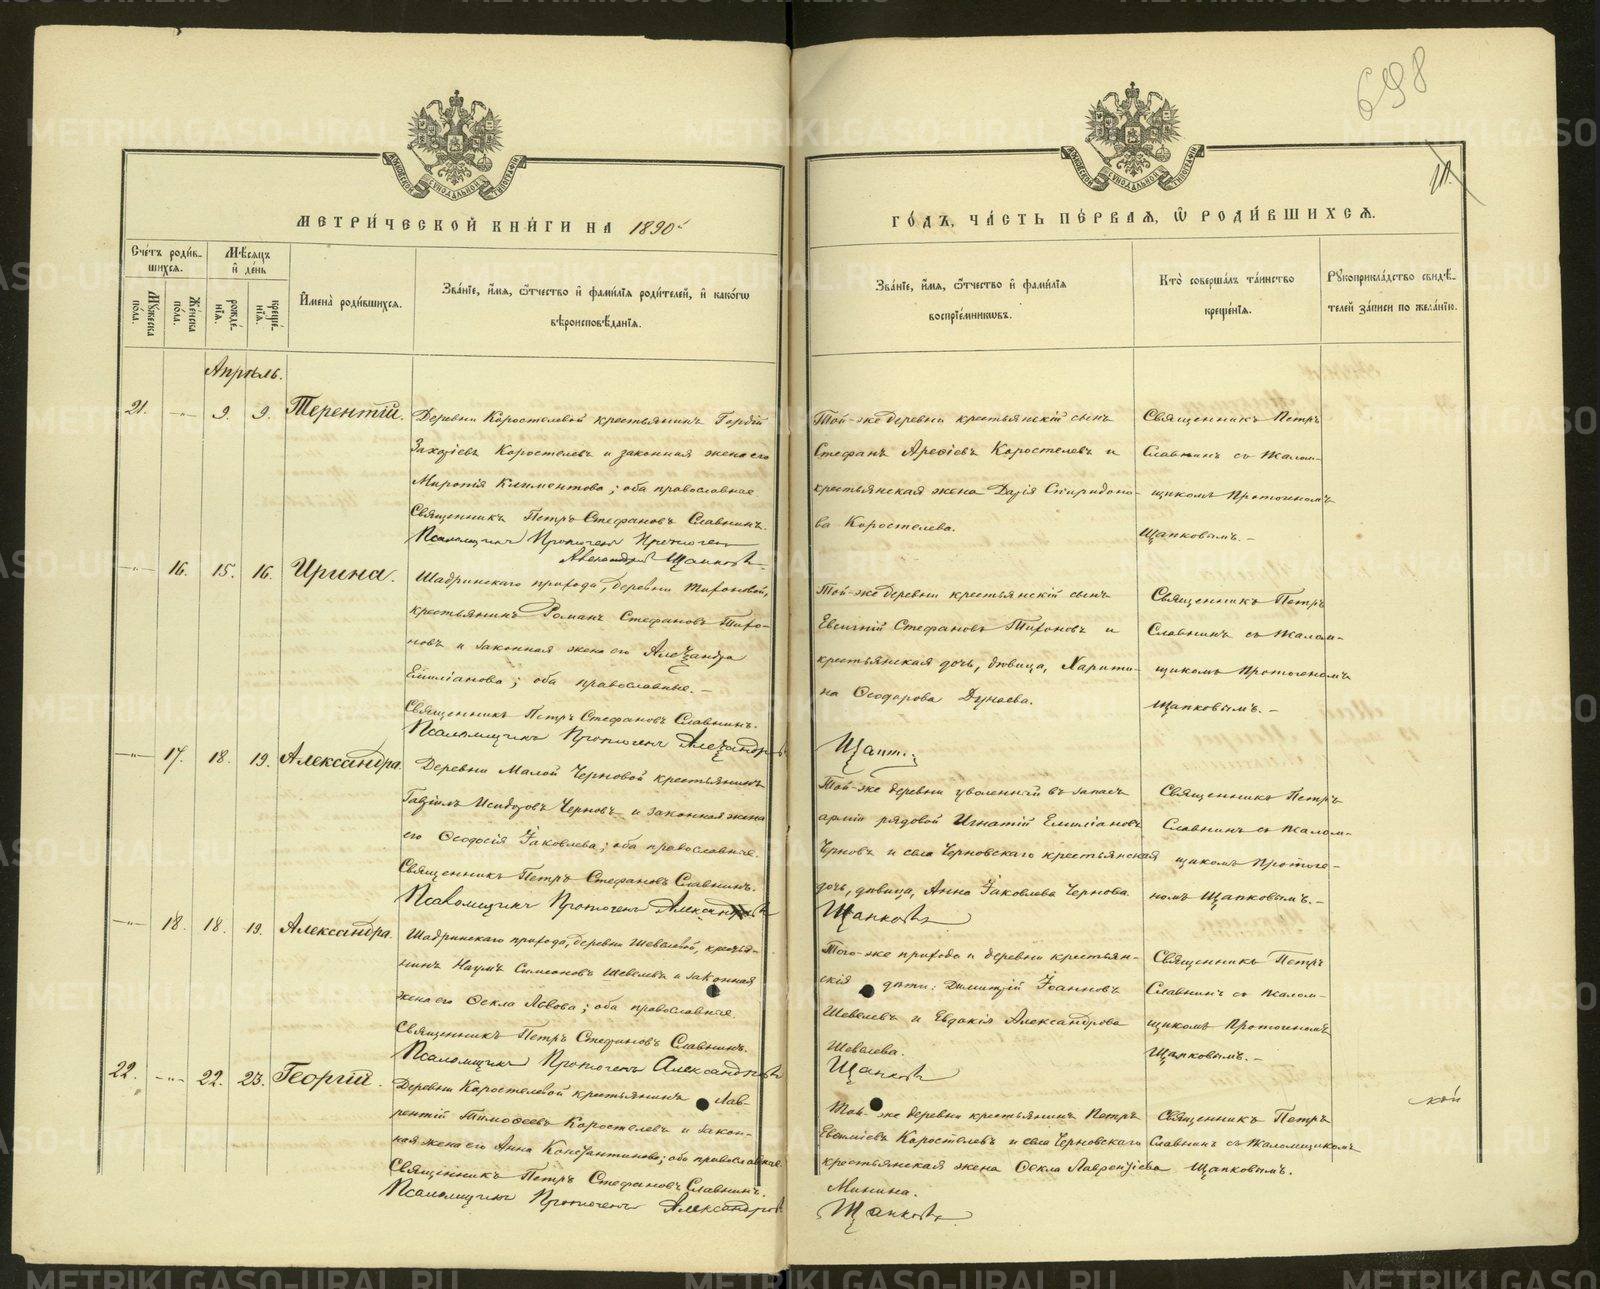 698
МЕТРИ́ЧЕСКОЙ КНИ́ГИ НА 1890й
ГО́ДЪ, ЧА́СТЬ ПЕ́РВАЯ, Ѿ РОДИ́ВШИХСѦ.
Сче́тъ роди́в-
шихсѧ.
Мѣ́сяцъ
и҆ де́нь
Мꙋ́жеска по́ла.
Же́нска по́ла.
рожде́-
нїѧ.
креще́-
нїѧ.
И҆мена̀ роди́вшихсѧ.
Зва́нїе, и҆́мѧ, ѻ҆́тчество и҆ фами́лїѧ роди́телей, и҆ како́гѡ
вѣроисповѣ́данїѧ.
Зва́нїе, и҆́мѧ, ѻ҆́тчество и҆ фами́лїѧ
воспрїе́мникѡвъ.
Кто̀ соверша́лъ та́инство
креще́нїѧ.
Рꙋкоприкла́дство свидѣ́-
телей за́писи по жела́нїю.
Апрѣль.
21. -"- 9. 9. Терентій.
Деревни Коростелевой крестьянинъ Гордій
Захаріевъ Коростелевъ и законная жена его
Климентова; оба православные
Священникъ Петръ Стефановъ Славнинъ.
Псаломщикъ Протогенъ
Александровъ Щапковъ
Той-же деревни крестьянскій сынъ
Стефанъ Арефіевъ Коростелевъ и
крестьянская жена Дарія Спиридоно-
ва Коростелева.
Священникъ Петръ
Славнинъ съ псалом-
щикомъ Протогеномъ
Щапковымъ. -
-"- 16. 15. 16. Ирина.
Шадринскаго прихода, деревни Тихоновой,
крестьянинъ Романъ Стефановъ Тихо-
новъ и законная жена его Александра
Емиліанова; оба православные. -
Священникъ Петръ Стефановъ Славнинъ.
Псаломщикъ Протогенъ Александровъ
Щапк.
Той-же деревни крестьянскій сынъ
Евгеній Стефановъ Тихоновъ и
крестьянская дочь, дѣвица, Харити-
на Ѳеодорова Дунаева.
Священникъ Петръ
Славнинъ съ псалом-
щикомъ Протогеномъ
Щапковымъ. -
-"- 17. 18. 19. Александра.
Деревни Малой Черновой крестьянинъ
Гавріилъ Исидоровъ Черновъ и законная жена
его Ѳеодосія Іаковлева; оба православные.
Священникъ Петръ Стефановъ Славнинъ.
Псаломщикъ Протогенъ Александровъ
Щапковъ
Той-же деревни уволенный въ запасъ
арміи рядовой Игнатій Емиліановъ
Черновъ и села Черновскаго крестьянская
дочь, дѣвица, Анна Іаковлева Чернова
Священникъ Петръ
Славнинъ съ псалом-
щикомъ Протоге-
номъ Щапковымъ. -
-"- 18. 18. 19. Александра.
Шадринскаго прихода, деревни Шевелевой, крестья-
нинъ Наумъ Симеоновъ Шевелевъ и законная
жена его Ѳекла Львова; оба православные.
Священникъ Петръ Стефановъ Славнинъ.
Псаломщикъ Протогенъ Александровъ
Щапковъ
Того-же прихода и деревни крестьян-
скія дѣти: Димитрій Іоанновъ
Шевелевъ и Евдокія Александрова
Шевелева.
Священникъ Петръ
Славнинъ съ псалом-
щикомъ Протогеномъ
Щапковымъ. -
22. -"- 22. 23. Георгій.
Деревни Коростелевой крестьянинъ Лав-
рентій Тимоѳеевъ Коростелевъ и закон-
ная жена его Анна Константинова; оба православные.
Священникъ Петръ Стефановъ Славнинъ.
Псаломщикъ Протогенъ Александровъ
Щапковъ
Той-же деревни крестьянинъ Петръ
Евѳиміевъ Коростелевъ и села Черновскаго
крестьянская жена Ѳекла Лаврентіева
Минина.
Священникъ Петръ
Славнинъ съ псаломщикомъ
Щапковымъ.
METRIKI.GASO-URAL.RU